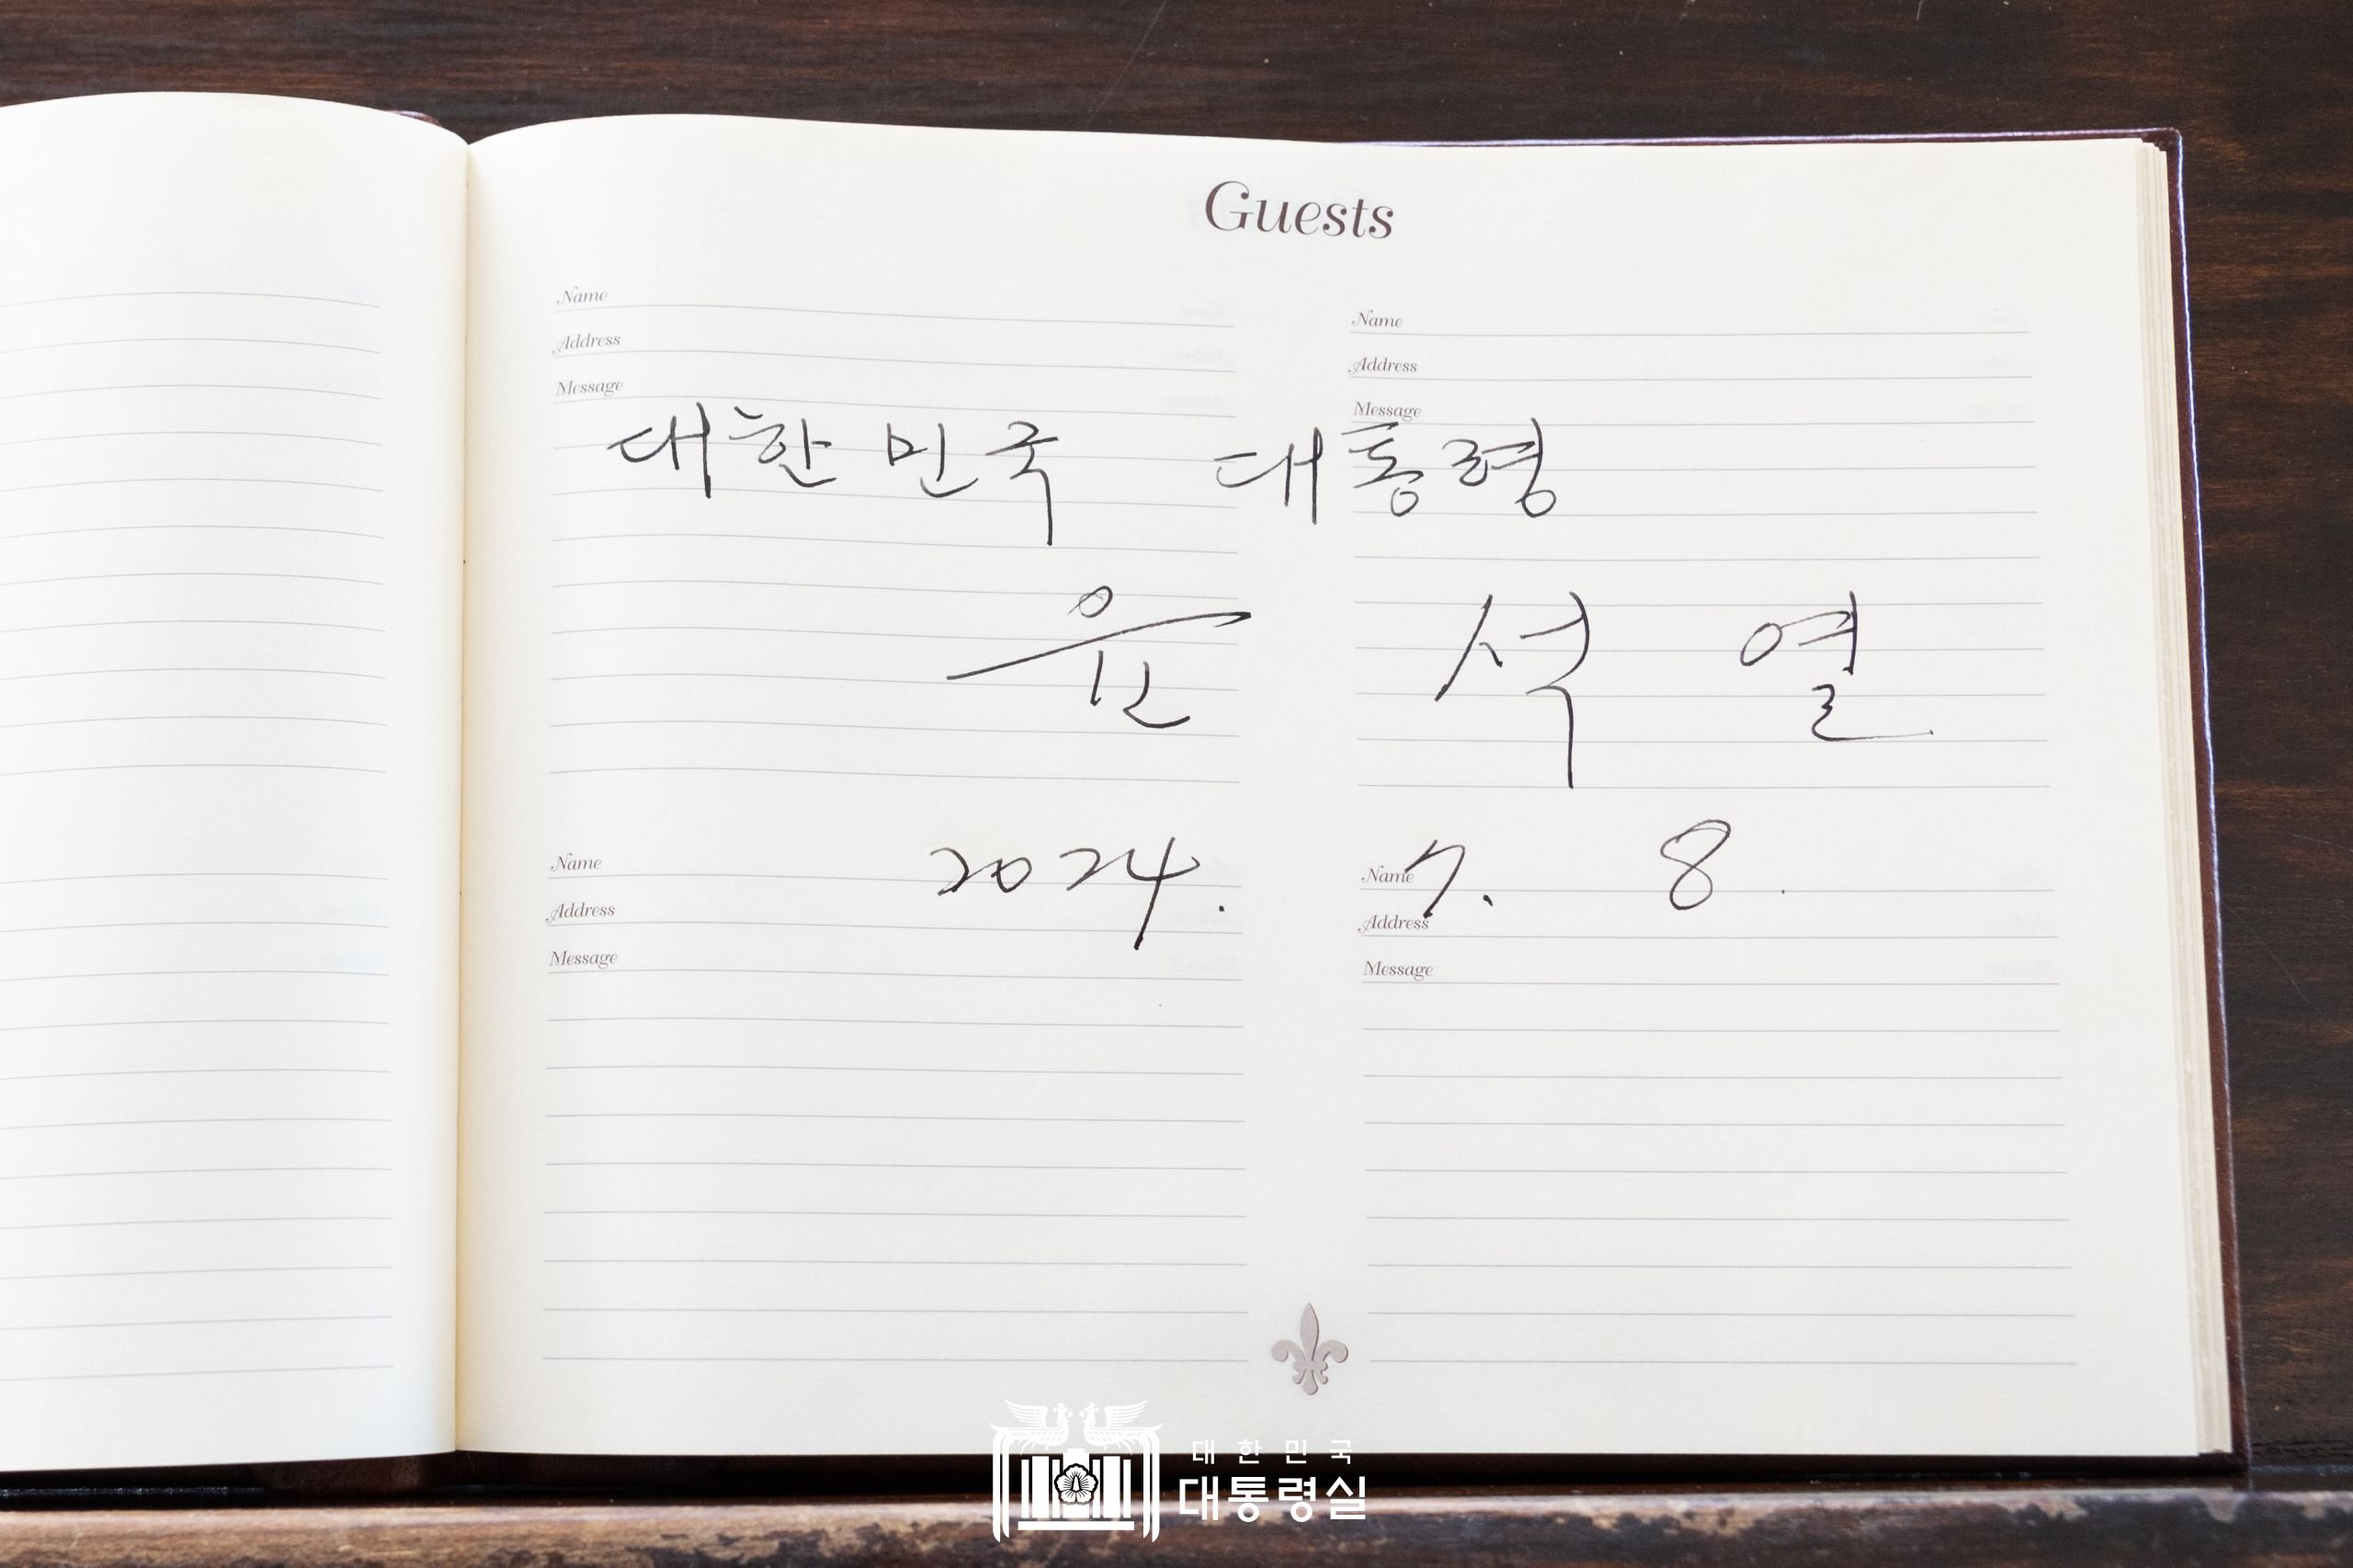 Guests
Name
Address
Message
Name
Address
Message
대한민국 대통령
윤석열
2024. 7. 8.
Name
Address
Message
Name
Address
Message
대한민국
대통령실